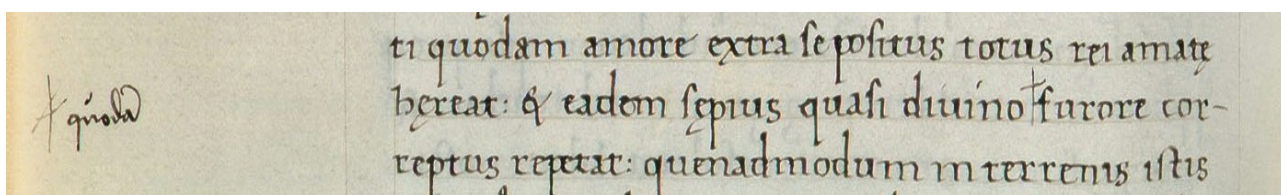 ti quodam amore extra se positus totus rei amatę
hęreat: & eadem sępius quasi diuino furore cor-
quodā
reptus repetat: quenadmodum in terrenis istis